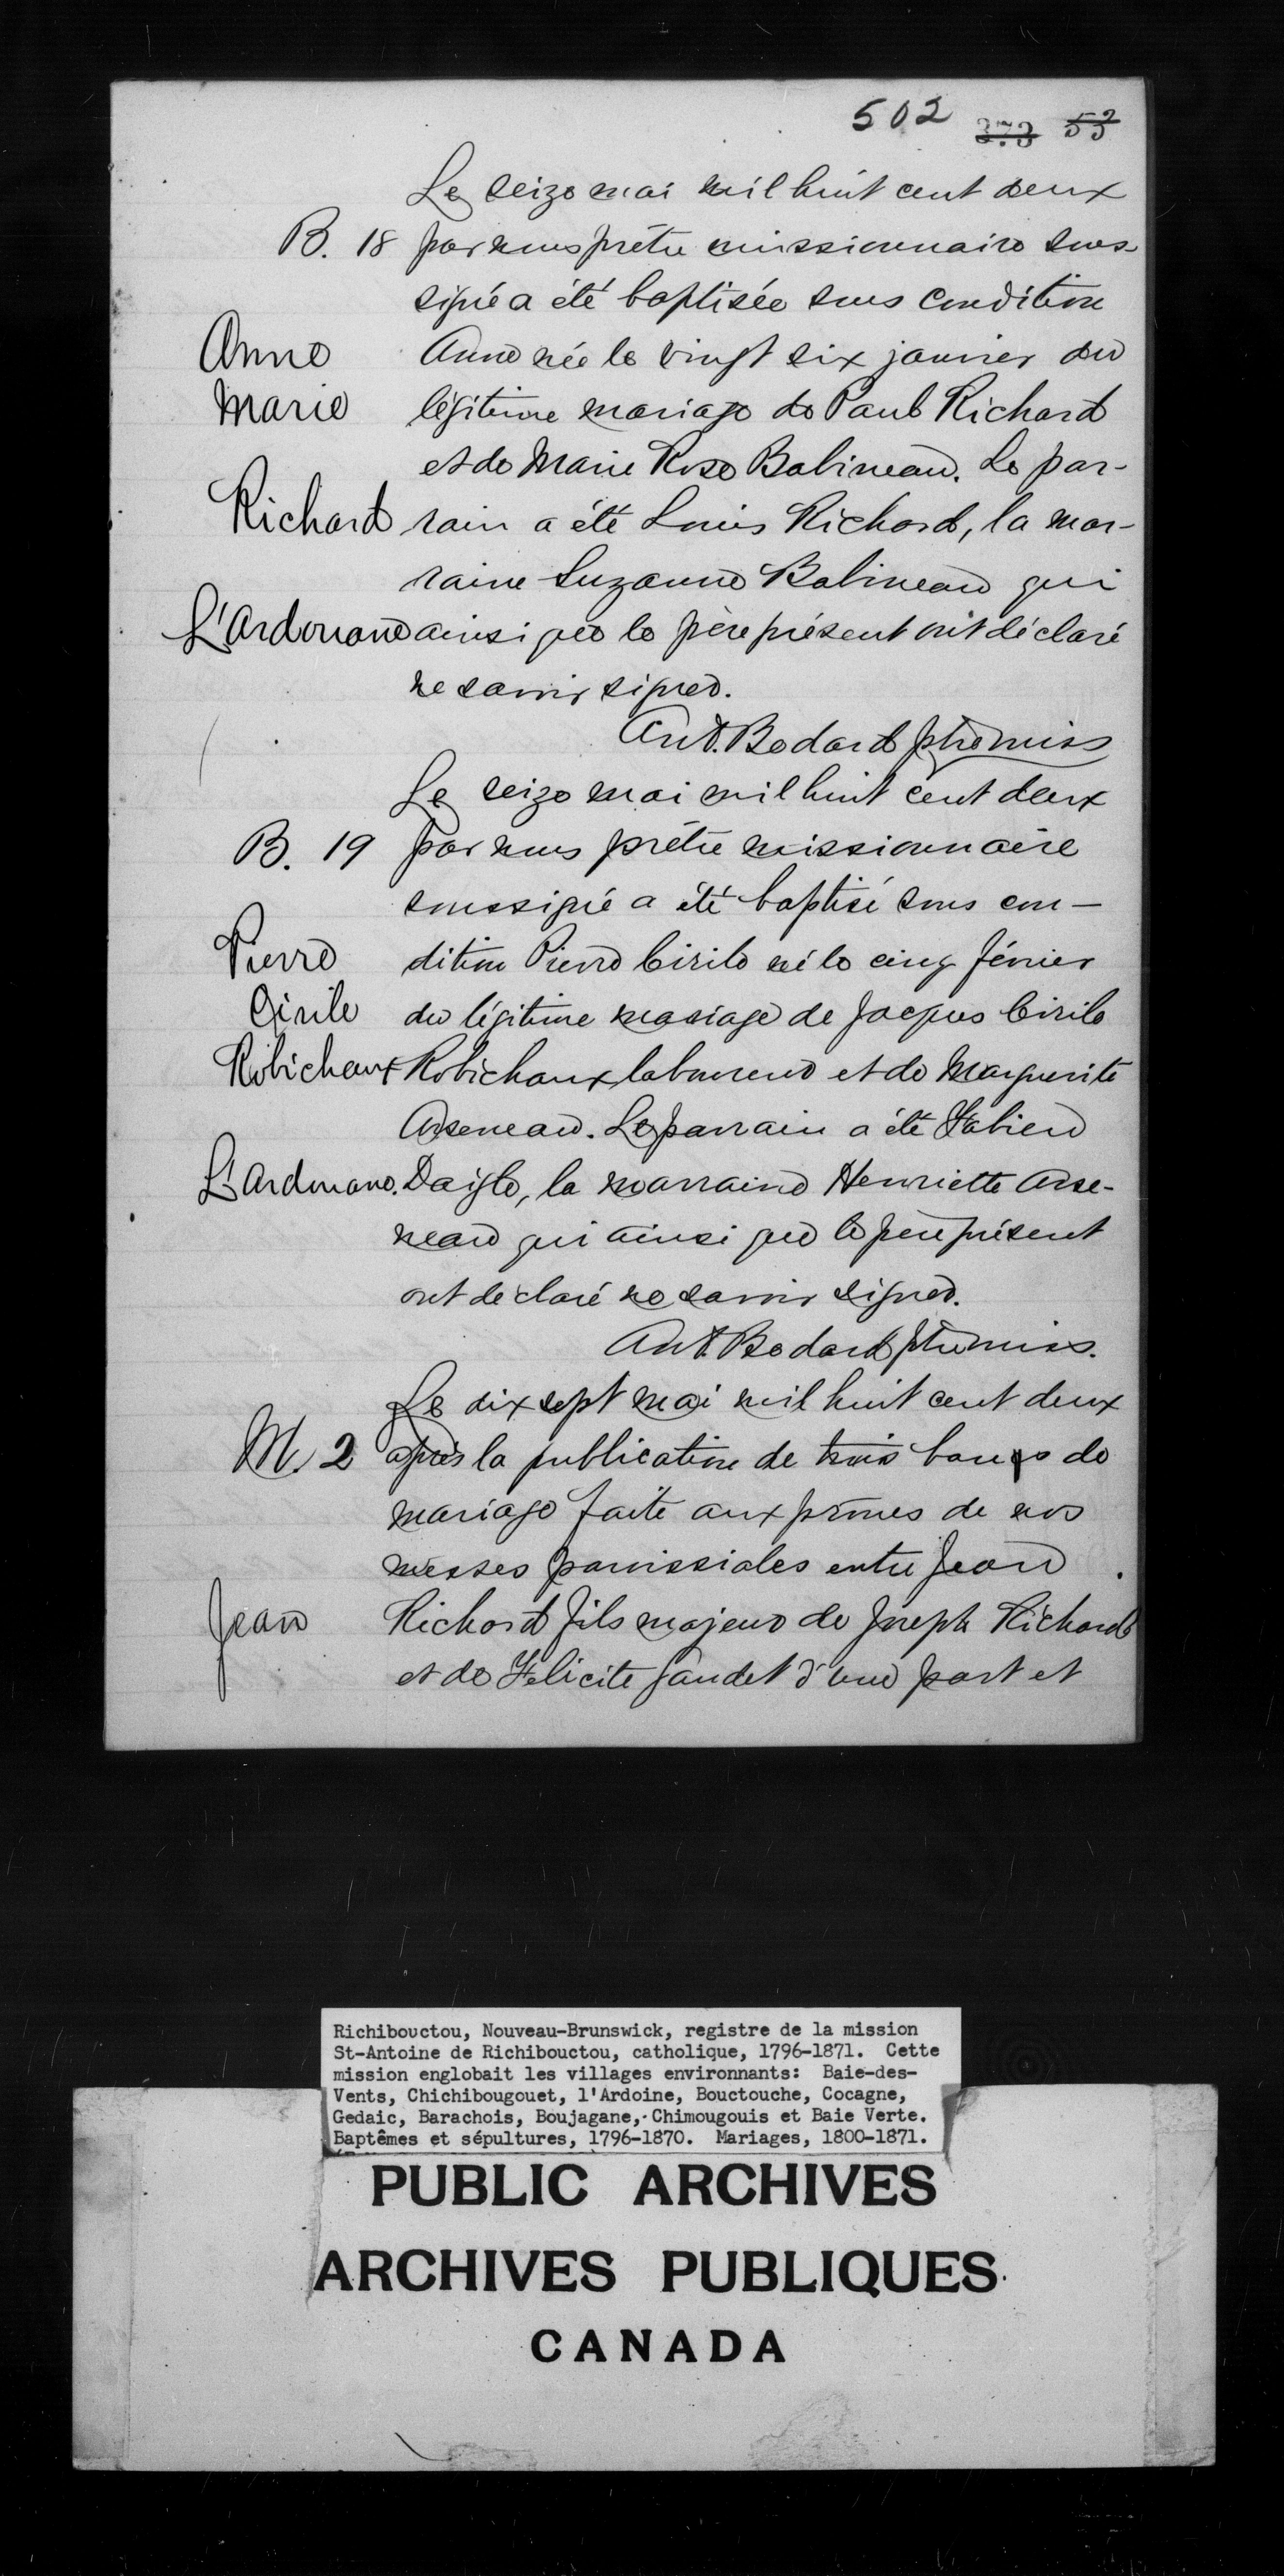 502 373 53²
Le seize mai mil huit cent deux
B. 18 par nous prêtre missionnaire sous
signé a été baptisée sous condition
Anne Anne née le vingt six janvier du
Marie légitime mariage de Paul Richard
et de Marie Rose Babineau. Le par-
Richard rain a été Louis Richard, la mar-
raine Suzanne Babineau qui
L'Ardouane ainsi que le père présent ont déclaré
ne savoir signer.
Ant. Bedard ptre miss
Le seize mai mil huit cent deux
B. 19 par nous prêtre missionnaire
soussigné a été baptisé sous con-
Pierre dition Pierre Cirile né le cinq février
Cirile du légitime mariage de Jacques Cirile
Robichaux Robichaux laboureur et de Marguerite
Arseneau. Le parrain a été Fabien
L'Ardouane. Daigle, la marraine Henriette Arse-
neau qui ainsi que le père présent
ont déclaré ne savoir signer.
Ant. Bedard ptre miss.
Le dix sept mai mil huit cent deux
M. 2 après la publication de trois bans de
mariage faite aux prônes de nos
messes paroissiales entre Jean
Jean Richard fils majeur de Joseph Richard
et de Felicite Gaudet d'une part et
Richibouctou, Nouveau-Brunswick, registre de la mission
St-Antoine de Richibouctou, catholique, 1796-1871. Cette
mission englobait les villages environnants: Baie-des-
Vents, Chichibougouet, l'Ardoine, Bouctouche, Cocagne,
Gedaic, Barachois, Boujagane, Chimougouis et Baie Verte.
Baptêmes et sépultures, 1796-1870. Mariages, 1800-1871.
PUBLIC ARCHIVES
ARCHIVES PUBLIQUES
CANADA